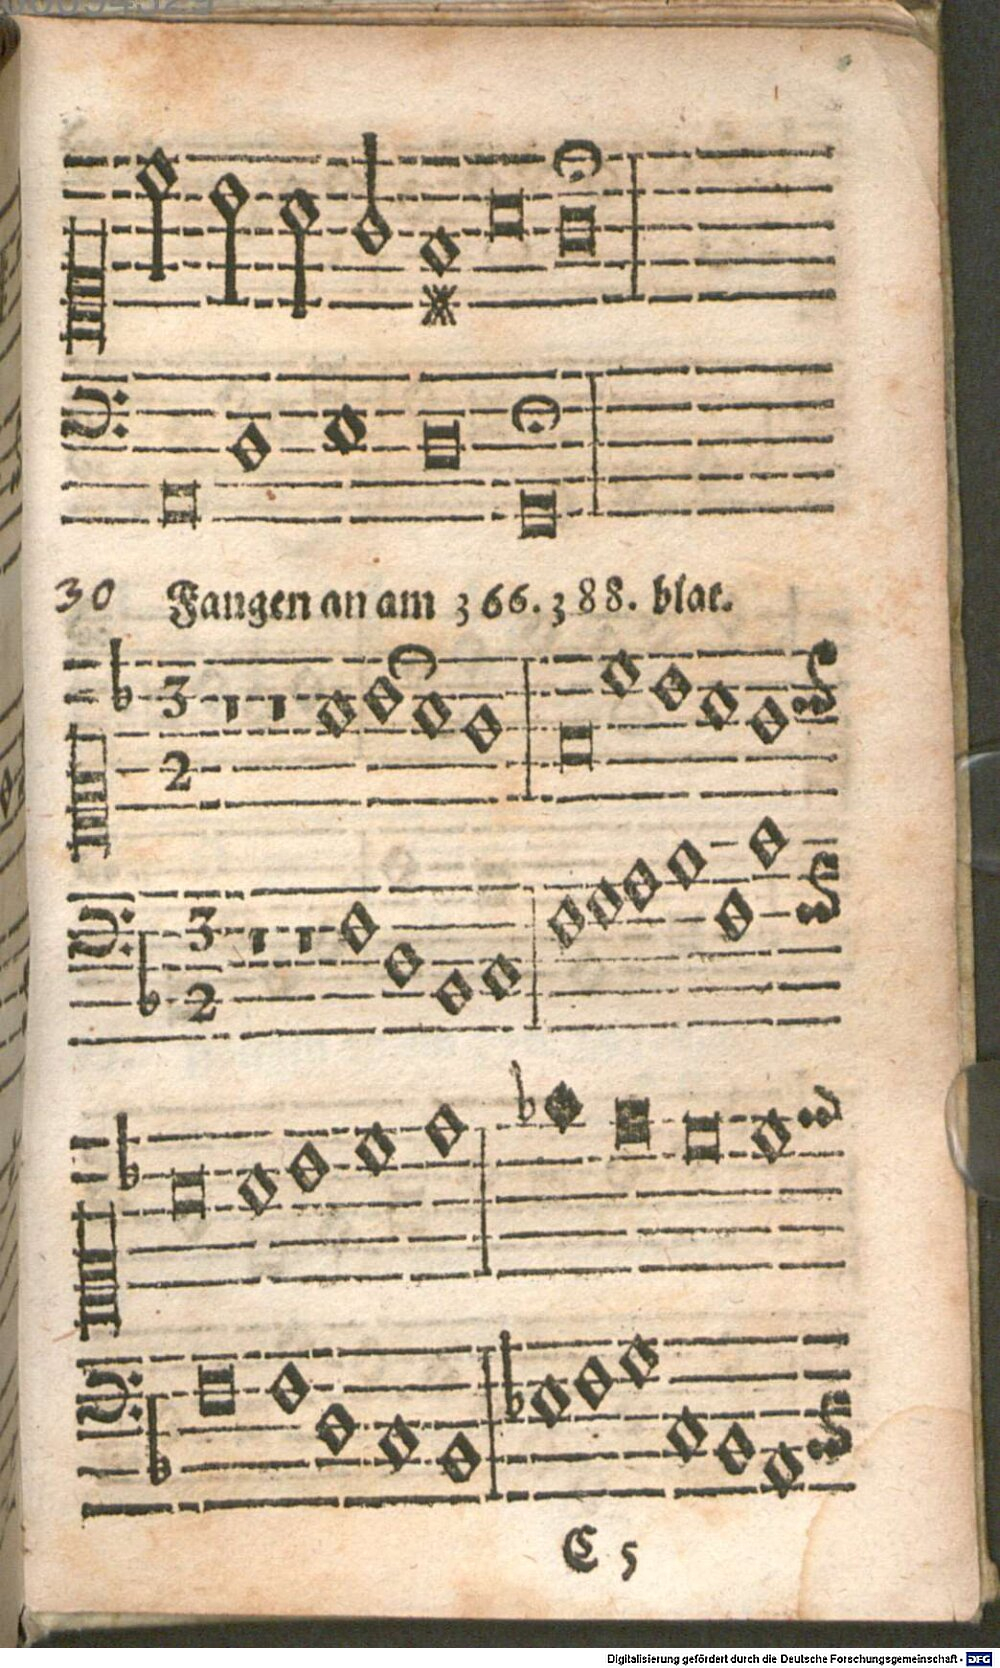 30 Fangen an am 366. 388. blat.
3
2
3
2
C 5
Digitalisierung gefördert durch die Deutsche Forschungsgemeinschaft - DFG